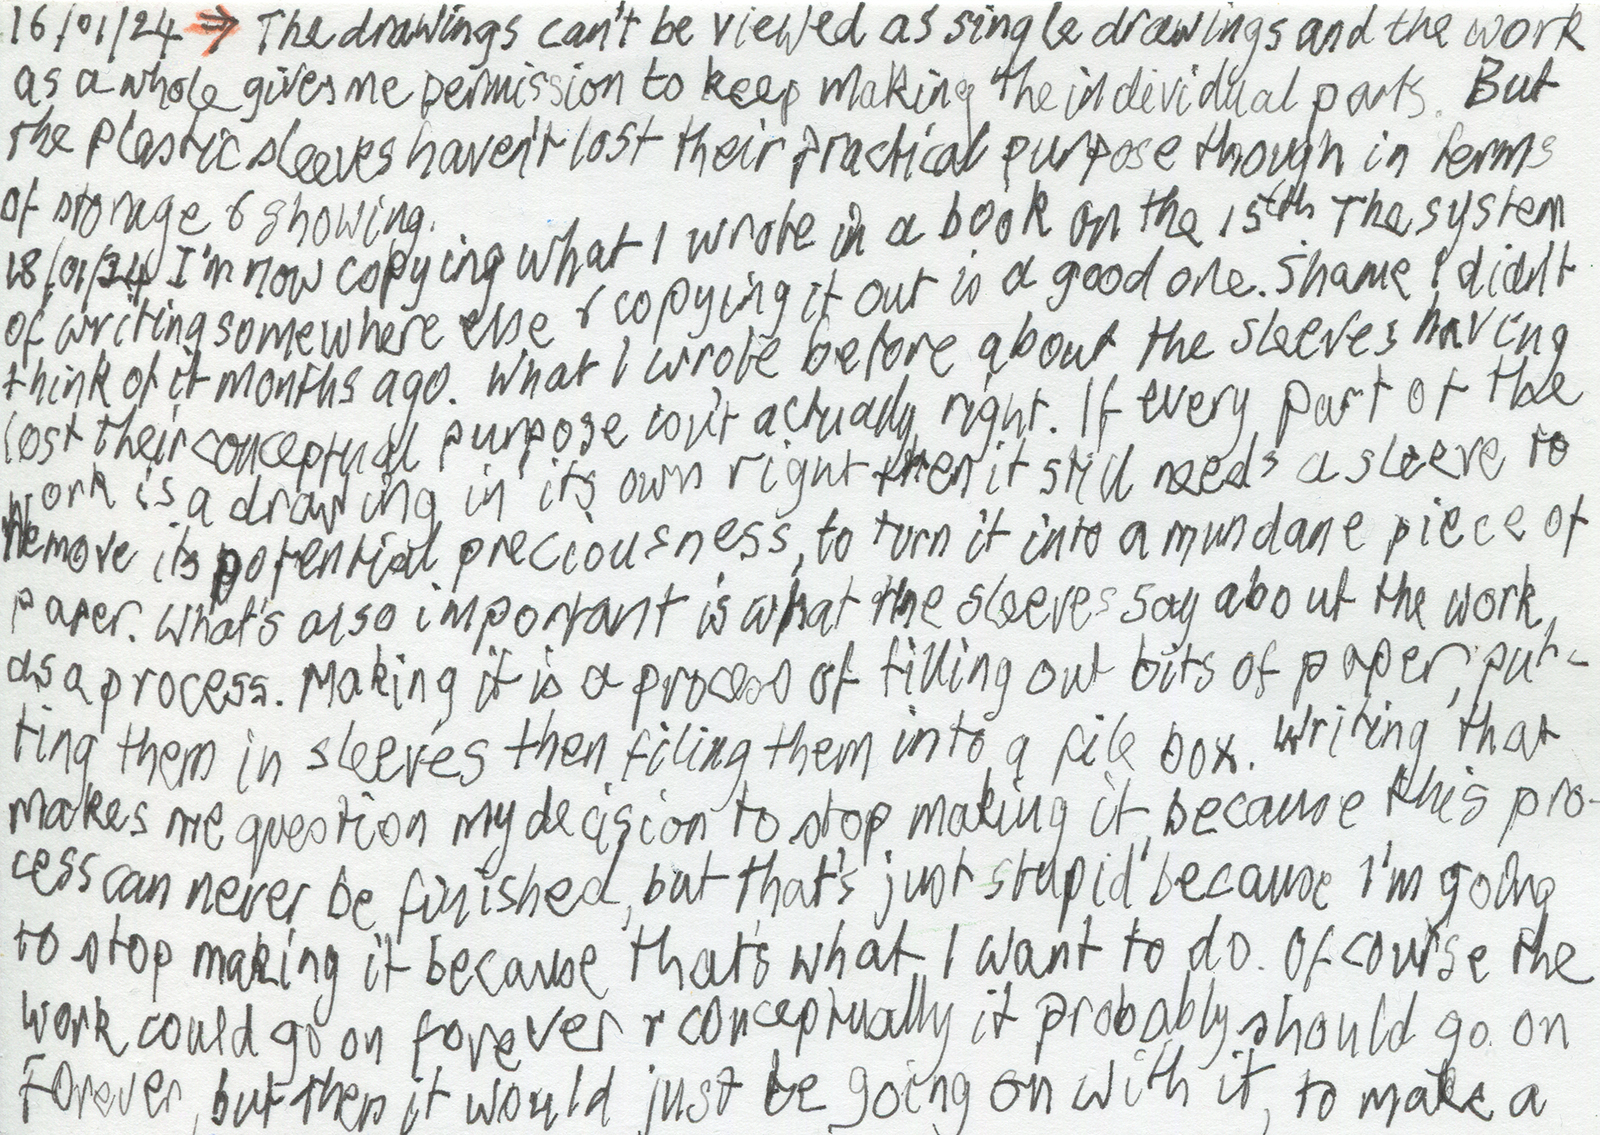 16/01/24 → The drawings can't be viewed as single drawings and the work
as a whole gives me permission to keep making the individual parts. But
the plastic sleeves haven't lost their practical purpose though in terms
of storage & showing.
18/01/24 I'm now copying what I wrote in a book on the 15th The system
of writing somewhere else & copying it out is a good one. Shame I didn't
think of it months ago. What I wrote before about the sleeves having
lost their conceptual purpose isn't actually right. If every part of the
work is a drawing in its own right then it still needs a sleeve to
remove its potential preciousness, to turn it into a mundane piece of
paper. What's also important is what the sleeves say about the work,
as a process. Making it is a process of filling out bits of paper, put-
ting them in sleeves then filing them into a file box. Writing that
makes me question my decision to stop making it because this pro-
cess can never be finished, but that's just stupid because I'm going
to stop making it because that's what I want to do. Of course the
work could go on forever & conceptually it probably should go on
forever, but then it would just be going on with it, to make a